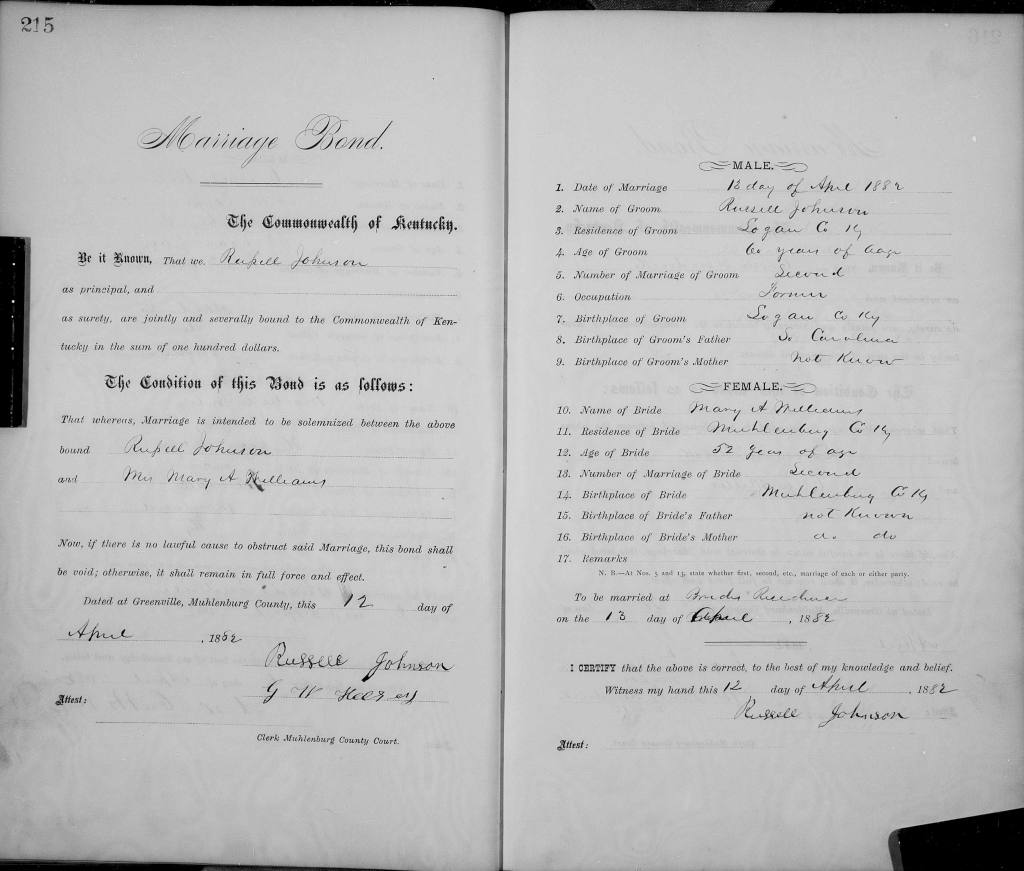 215
Marriage Bond.
The Commonwealth of Kentucky.
Be it Known, That we. Russell Johnson
as principal, and
as surety, are jointly and severally bound to the Commonwealth of Ken-
tucky in the sum of one hundred dollars.
The Condition of this Bond is as follows:
That whereas, Marriage is intended to be solemnized between the above
bound Russell Johnson
and Mrs Mary A Williams
Now, if there is no lawful cause to obstruct said Marriage, this bond shall
be void; otherwise, it shall remain in full force and effect.
Dated at Greenville, Muhlenburg County, this 12 day of
April, 1882
Russell Johnson
G W
Attest:
Clerk Muhlenburg County Court.
MALE.
1. Date of Marriage 13 day of April 1882
2. Name of Groom Russell Johnson
3. Residence of Groom Logan Co Ky
4. Age of Groom 60 years of age
5. Number of Marriage of Groom Second
6. Occupation Farmer
7. Birthplace of Groom Logan Co Ky
8. Birthplace of Groom's Father So Carolina
9. Birthplace of Groom's Mother not Known
FEMALE.
10. Name of Bride Mary A Williams
11. Residence of Bride Muhlenburg Co Ky
12. Age of Bride 52 years of age
13. Number of Marriage of Bride Second
14. Birthplace of Bride Muhlenburg Co Ky
15. Birthplace of Bride's Father not Known
16. Birthplace of Bride's Mother do do
17. Remarks
N. B.—At Nos. 5 and 13, state whether first, second, etc., marriage of each or either party.
To be married at Brides Residence
on the 13 day of April, 1882
I CERTIFY that the above is correct, to the best of my knowledge and belief.
Witness my hand this 12 day of April, 1882
Russell Johnson
Attest: